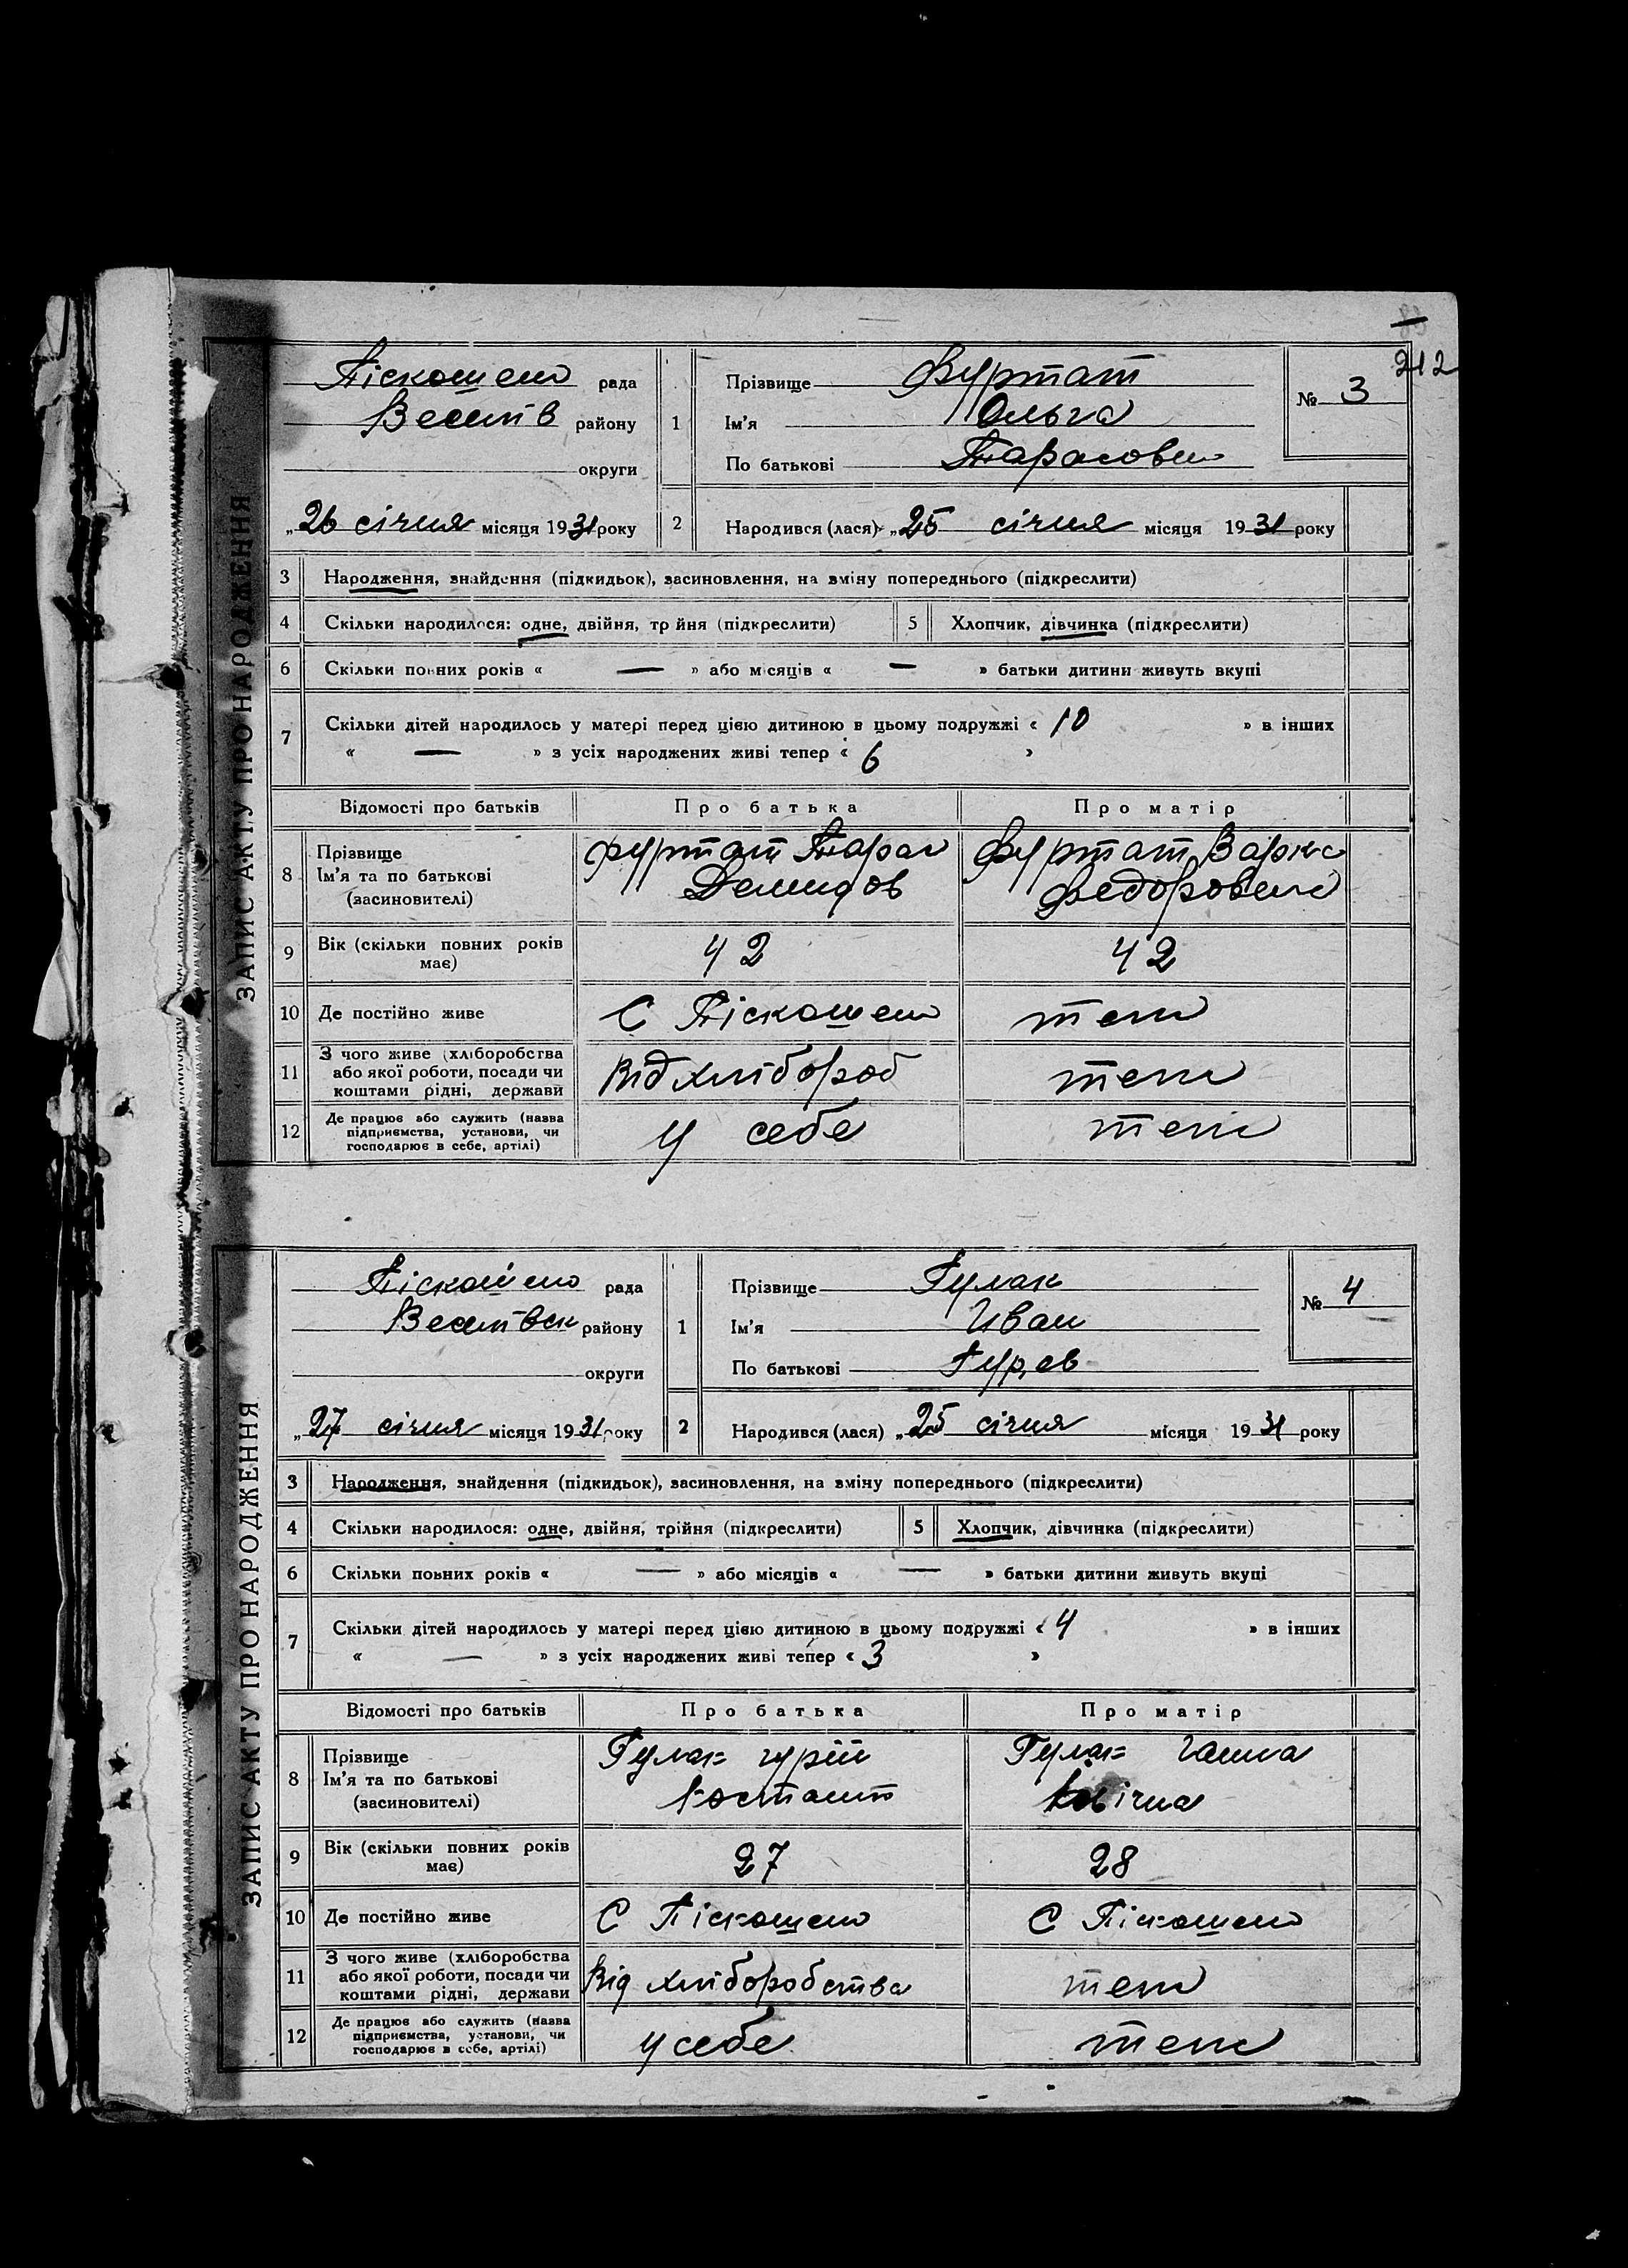 212
ЗАПИС АКТУ ПРО НАРОДЖЕННЯ
Піскошено рада
Веселів району
округи
„26 січня місяця 1931 року
1
Прізвище Фуртат
Ім'я Ольга
По батькові Тарасовн
№ 3
2 Народився (лася) „25 січня місяця 1931 року
3 Народження, знайдення (підкидьок), засиновлення, на зміну попереднього (підкреслити)
4 Скільки народилося: одне, двійня, трійня (підкреслити) 5 Хлопчик, дівчинка (підкреслити)
6 Скільки повних років « — » або місяців « — » батьки дитини живуть вкупі
7 Скільки дітей народилось у матері перед цією дитиною в цьому подружжі « 10 » в інших
« — » з усіх народжених живі тепер « 6 »
Відомості про батьків Про батька Про матір
8 Прізвище Ім'я та по батькові (засиновителі)
Фуртат Тарас Демидов
Фуртат Варка Федоровна
9 Вік (скільки повних років має) 42 42
10 Де постійно живе С Піскошено теж
11 З чого живе (хліборобства або якої роботи, посади чи коштами рідні, держави Від хлібороб теж
12 Де працює або служить (назва підприємства, установи, чи господарює в себе, артілі) у себе теж
ЗАПИС АКТУ ПРО НАРОДЖЕННЯ
Піскошено рада
Веселівск району
округи
„27 січня місяця 1931 року
1
Прізвище Гулак
Ім'я Иван
По батькові Гурієв
№ 4
2 Народився (лася) „25 січня місяця 1931 року
3 Народження, знайдення (підкидьок), засиновлення, на зміну попереднього (підкреслити)
4 Скільки народилося: одне, двійня, трійня (підкреслити) 5 Хлопчик, дівчинка (підкреслити)
6 Скільки повних років « — » або місяців « — » батьки дитини живуть вкупі
7 Скільки дітей народилось у матері перед цією дитиною в цьому подружжі « 4 » в інших
« — » з усіх народжених живі тепер « 3 »
Відомості про батьків Про батька Про матір
8 Прізвище Ім'я та по батькові (засиновителі)
Гулак гурій Костант
Гулак Ганна
9 Вік (скільки повних років має) 27 28
10 Де постійно живе С Піскошено С Піскошено
11 З чого живе (хліборобства або якої роботи, посади чи коштами рідні, держави Від хліборобства теж
12 Де працює або служить (назва підприємства, установи, чи господарює в себе, артілі) у себе теж